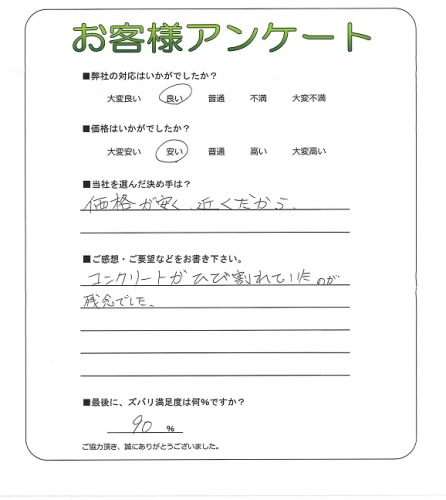 お客様アンケート
■弊社の対応はいかがでしたか？
大変良い 良い 普通 不満 大変不満
■価格はいかがでしたか？
大変安い 安い 普通 高い 大変高い
■当社を選んだ決め手は？
価格が安く、近くだから。
■ご感想・ご要望などをお書き下さい。
コンクリートがひび割れていたのが
残念でした。
■最後に、ズバリ満足度は何%ですか？
90 %
ご協力頂き、誠にありがとうございました。